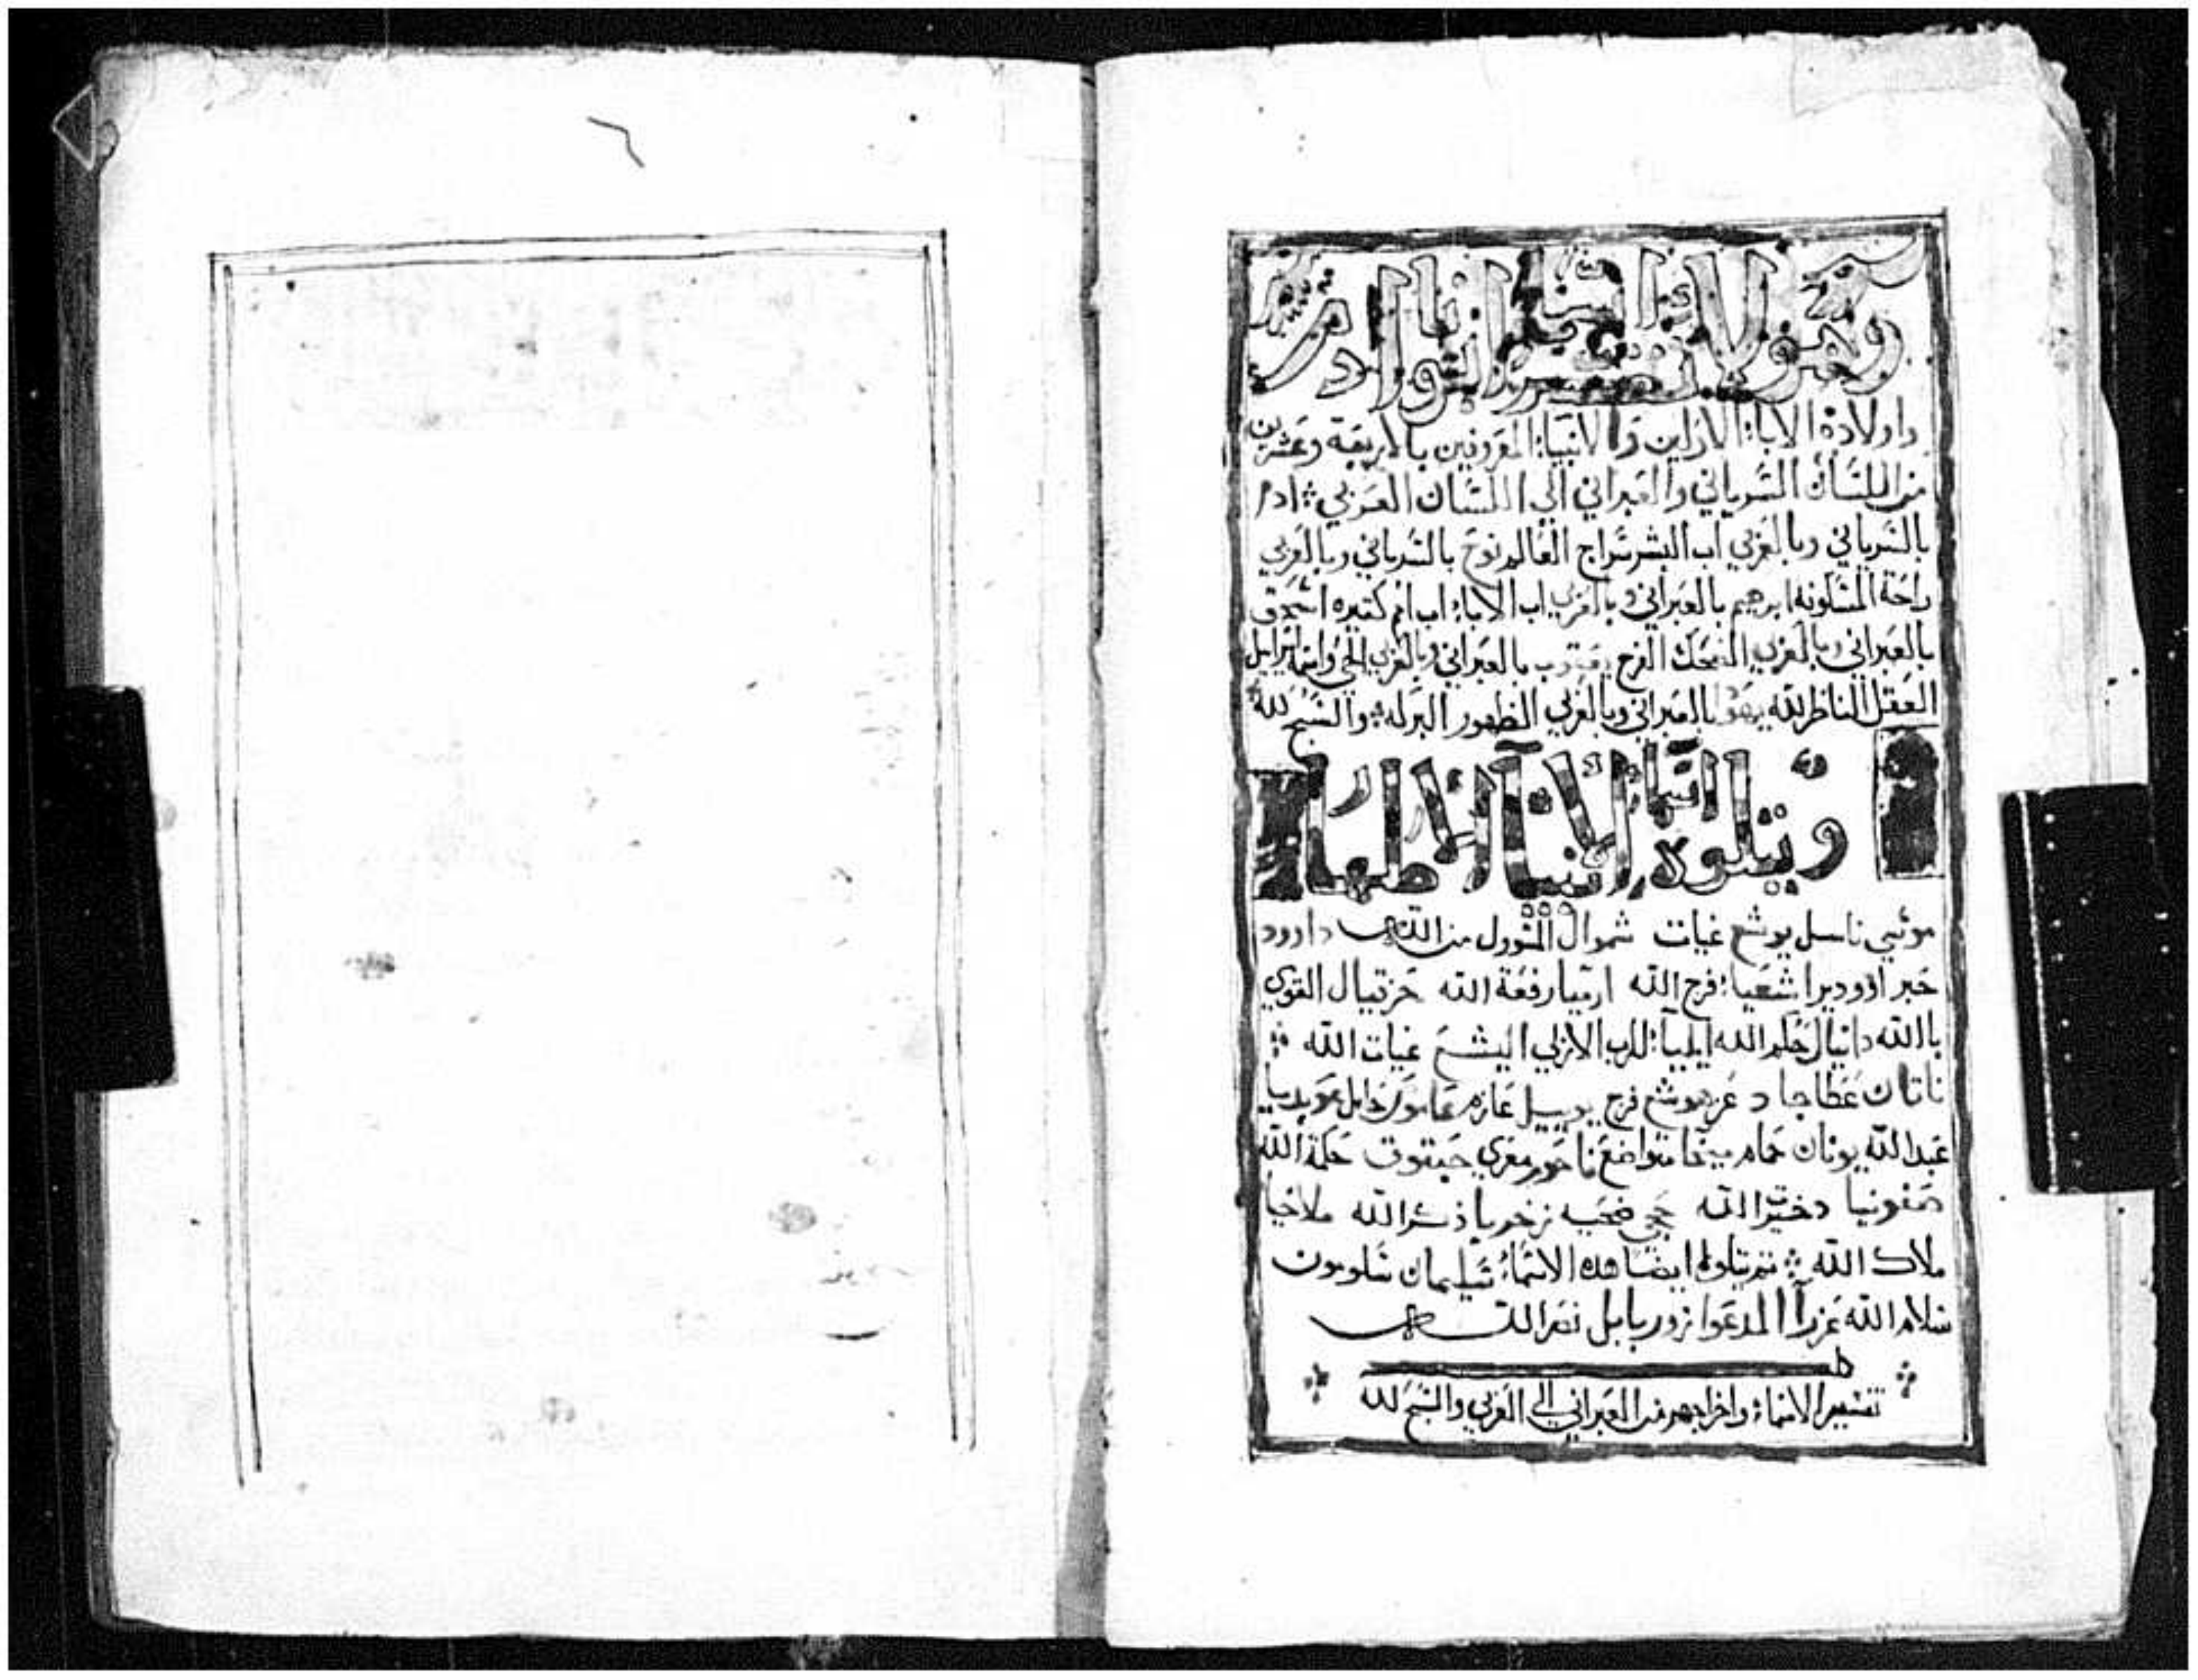 وهولاء ايضا اسما انبوا ادم
واولاده الابا الاولين والانبيا المعروفين بالاربعة وعشرين
من اللسان السرياني والعبراني الي اللسان العربي ادم
بالسرياني وبالعربي اب البشر سراج العالم نوح بالسرياني وبالعربي
راحة ابرهيم بالعبراني وبالعربي اب الابا اب امم كتيره اسحق
بالعبراني وبالعربي الضحك الفرح يعقوب بالعبراني وبالعربي واسرايل
العقل الناظر لله بالعبراني وبالعربي الظهور والسبح لله
ويتلوه اسما الانبيا الاطهار
موسي ناسل يوشع غيات شموال المسوول من الله داوود
خبر اشعيا فرج الله ارميا رفعة الله حزقيال القوي
بالله دانيال حكم الله ايليا الرب الازلي اليشع غيات الله
ناتان عطا جاد هوشع فرح يوييل عاموص عوبديا
عبد الله يونان حمام ميخا متواضع ناحوم معزي حبقوق حكمة الله
صفونيا الله حجي زخريا ذكر الله ملاخيا
ملاك الله ثم تتلوه ايضا هذه الاسماء سليمان سلومون
سلام الله عزرا المدعوا زوربابل نصر الله
تفسير الاسماء واخراجهم من العبراني الي العربي والسبح لله